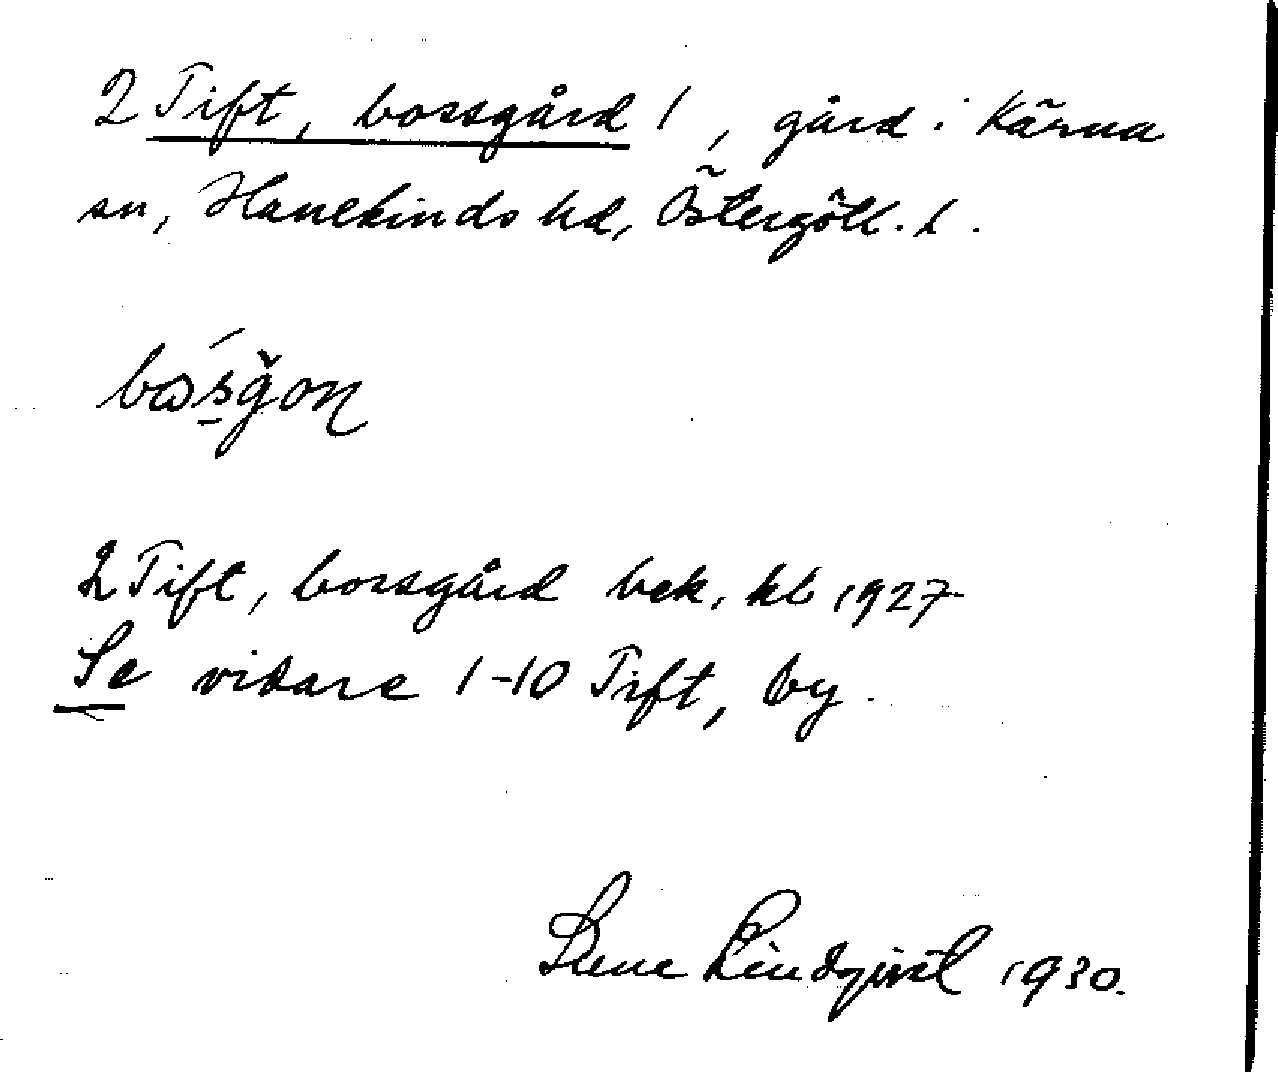 2 Tift, bossgård 1, gård i Kärna
sn, Hanekinds hd, Östergötl. l.
2 Tift, bossgård bek. kb 1927
Se vidare 1-10 Tift, by.
Sune Lindqvist 1930.